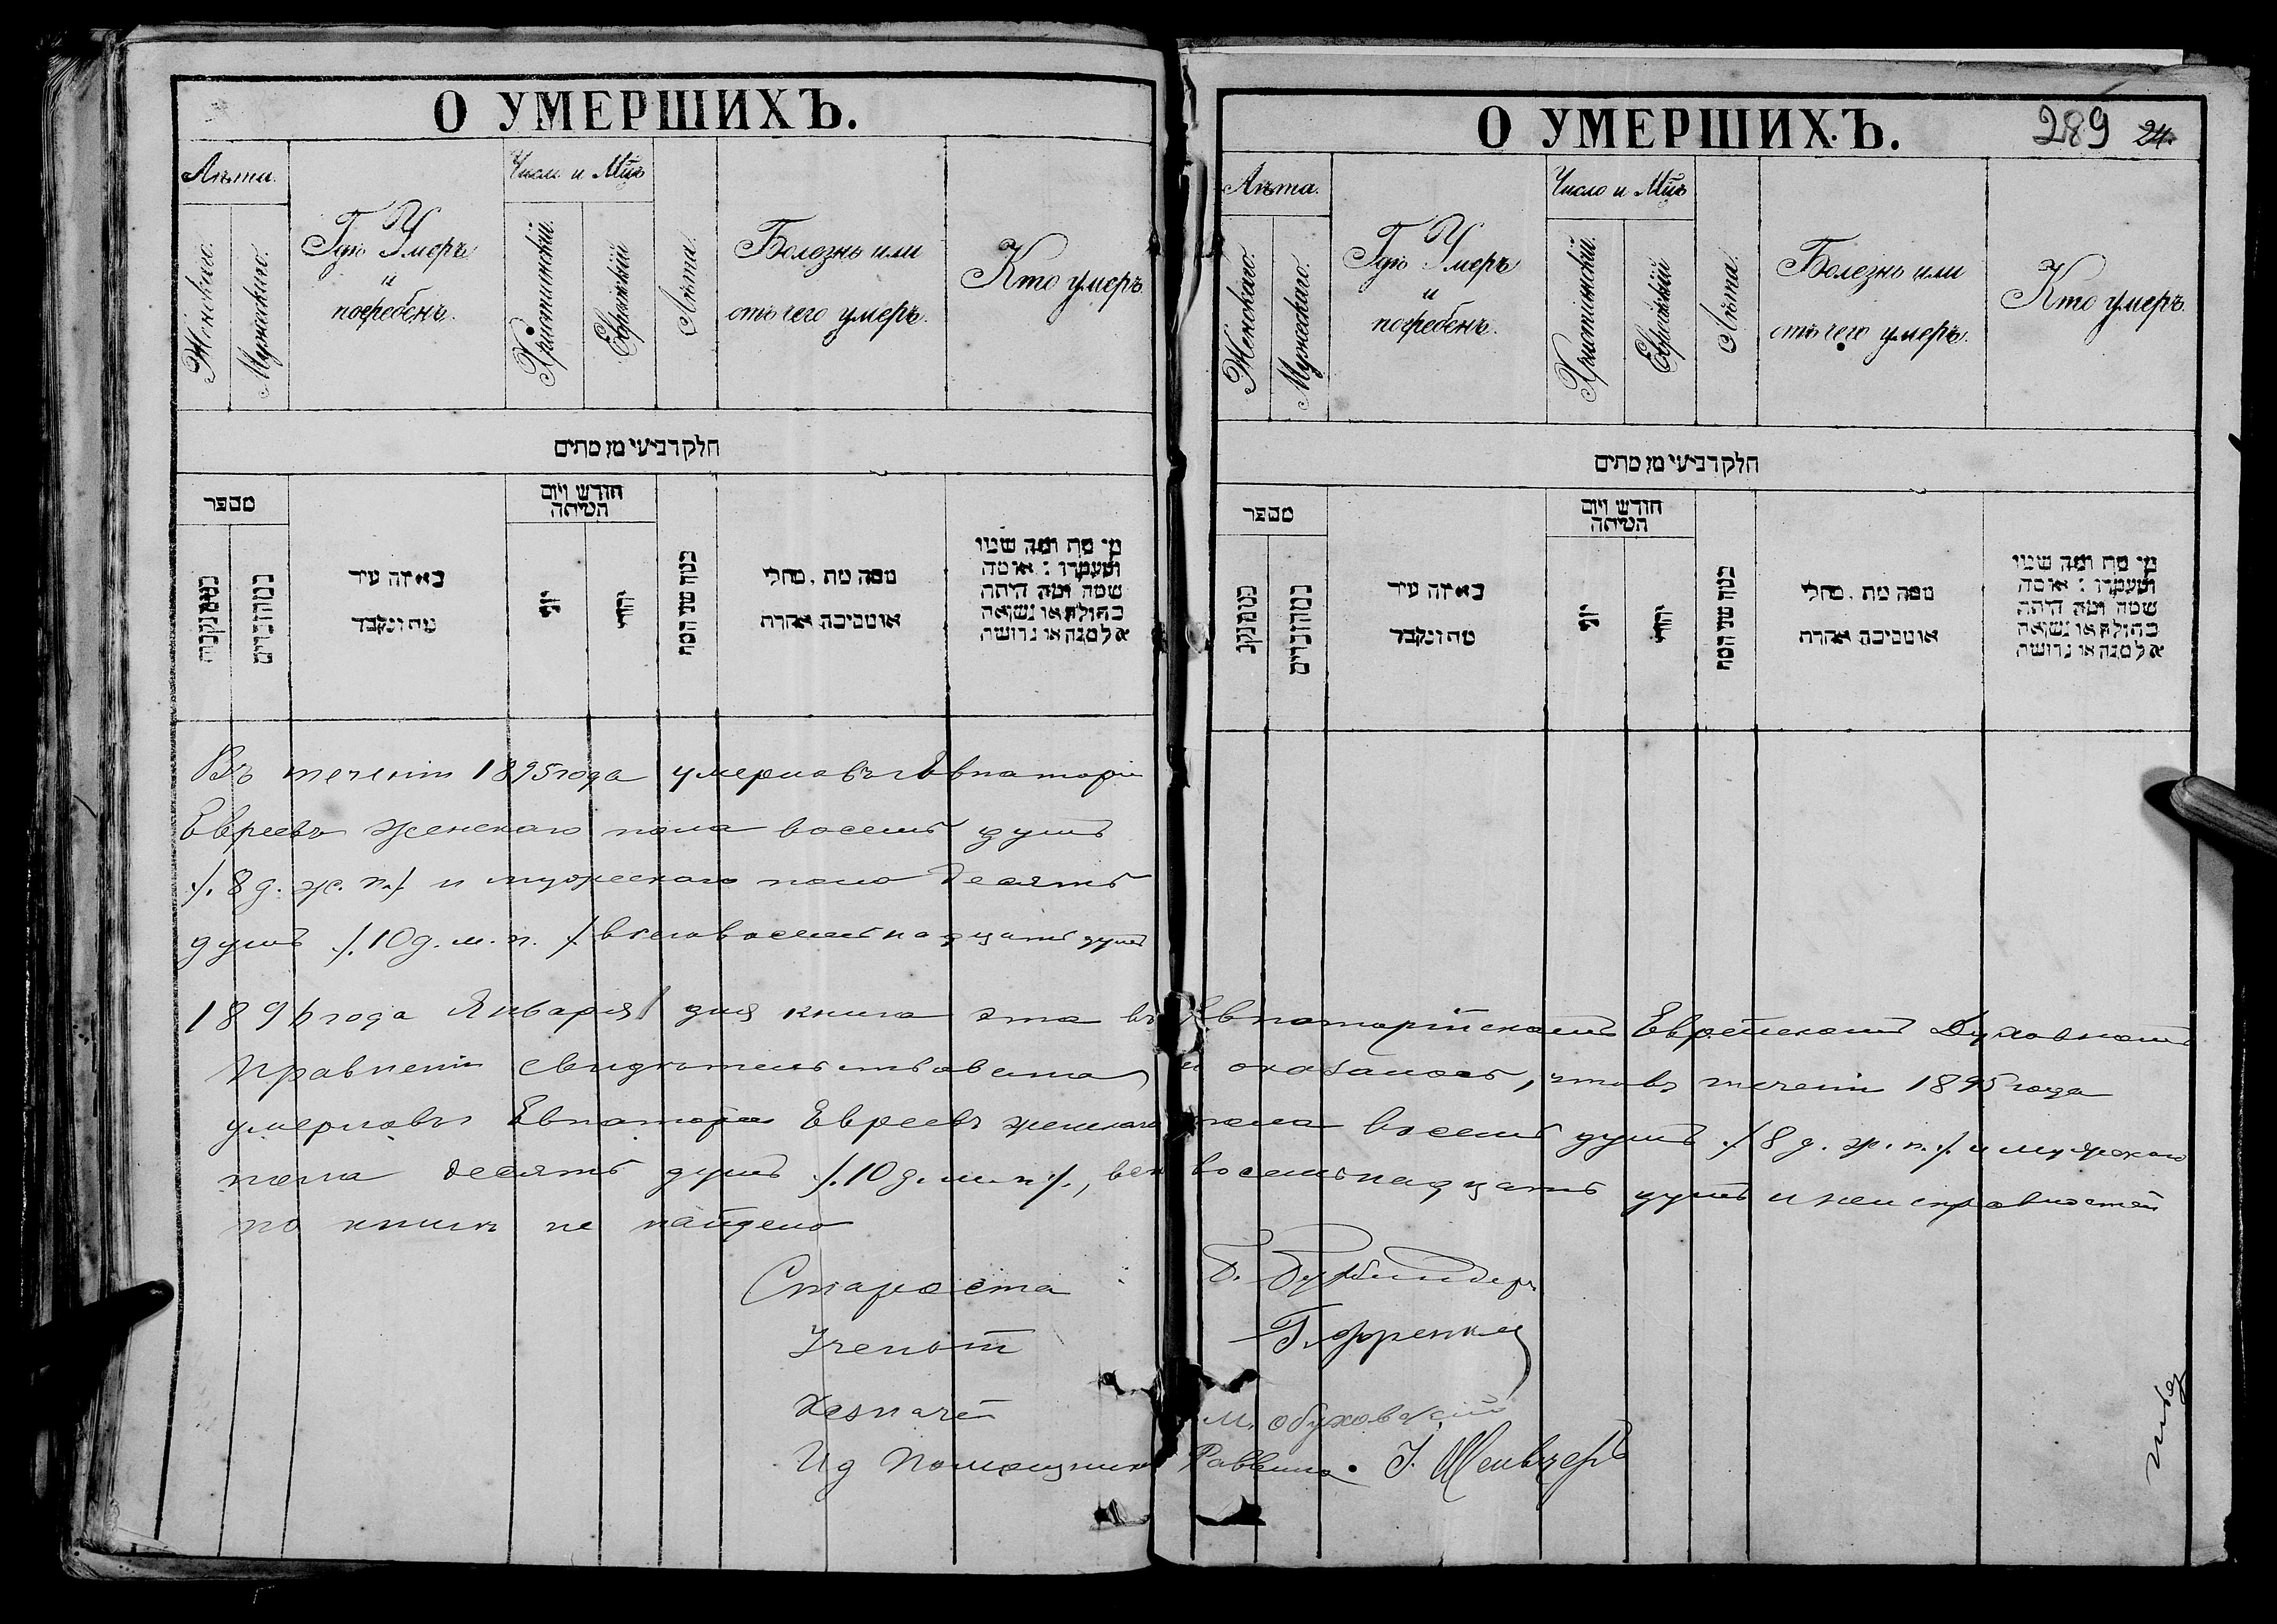 О УМЕРШИХЪ.
Лѣта.
Женскаго.
Мужескаго.
Гдѣ Умеръ
и
погребенъ.
Число и Мцъ
Христіянскій.
Еврейскій
Лѣта.
Болезнь или
отъ чего умеръ.
Кто умеръ.
חלק רביעי מן מתים
מספר
במה זכרים
באיזה עיר
מת ונקבר
חודש ויום
המיתה
יוני
יהודי
כמה שני המת
מפה מת . מחלי
או מסיבה אחרת
מי מת ומה שמו
ומעמדו : או מה
שמה ומה היתה
בתולה או נשואה
אלמנה או גרושה
Въ теченіи 1895 года умерло въ г Евпаторіи
Евреевъ женскаго пола восемь душъ
./. 8 д. ж. п./. и мужескаго пола десять
душъ ./. 10 д. м. п. ./. всего восемьнадцать душъ
О УМЕРШИХЪ.
289 24.
Лѣта.
Женскаго.
Мужескаго.
Гдѣ Умеръ
и
погребенъ.
Число и Мцъ
Христіянскій.
Еврейскій
Лѣта.
Болезнь или
отъ чего умеръ.
Кто умеръ.
חלק רביעי מן מתים
מספר
במה זכרים
באיזה עיר
מת ונקבר
חודש ויום
המיתה
יוני
יהודי
כמה שני המת
מפה מת . מחלי
או מסיבה אחרת
מי מת ומה שמו
ומעמדו : או מה
שמה ומה היתה
בתולה או נשואה
אלמנה או גרושה
1896 года Января дня книга эта въ Евпаторійскомъ Еврейскомъ Духовномъ
Правленіи свидѣтельствована и оказалось, что въ теченіи 1895 года
умерло въ Евпаторіи Евреевъ женскаго пола восемь душъ ./. 8 д. ж. п. ./. и мужескаго
пола десять душъ ./. 10 д. м. п ./., всего восемьнадцать душъ и неисправностей
по книгѣ не найдено
Староста
Ученый Г. Френкель
Казначей М. Обуховскій
И д Помощника Раввина І. Шельвзеръ